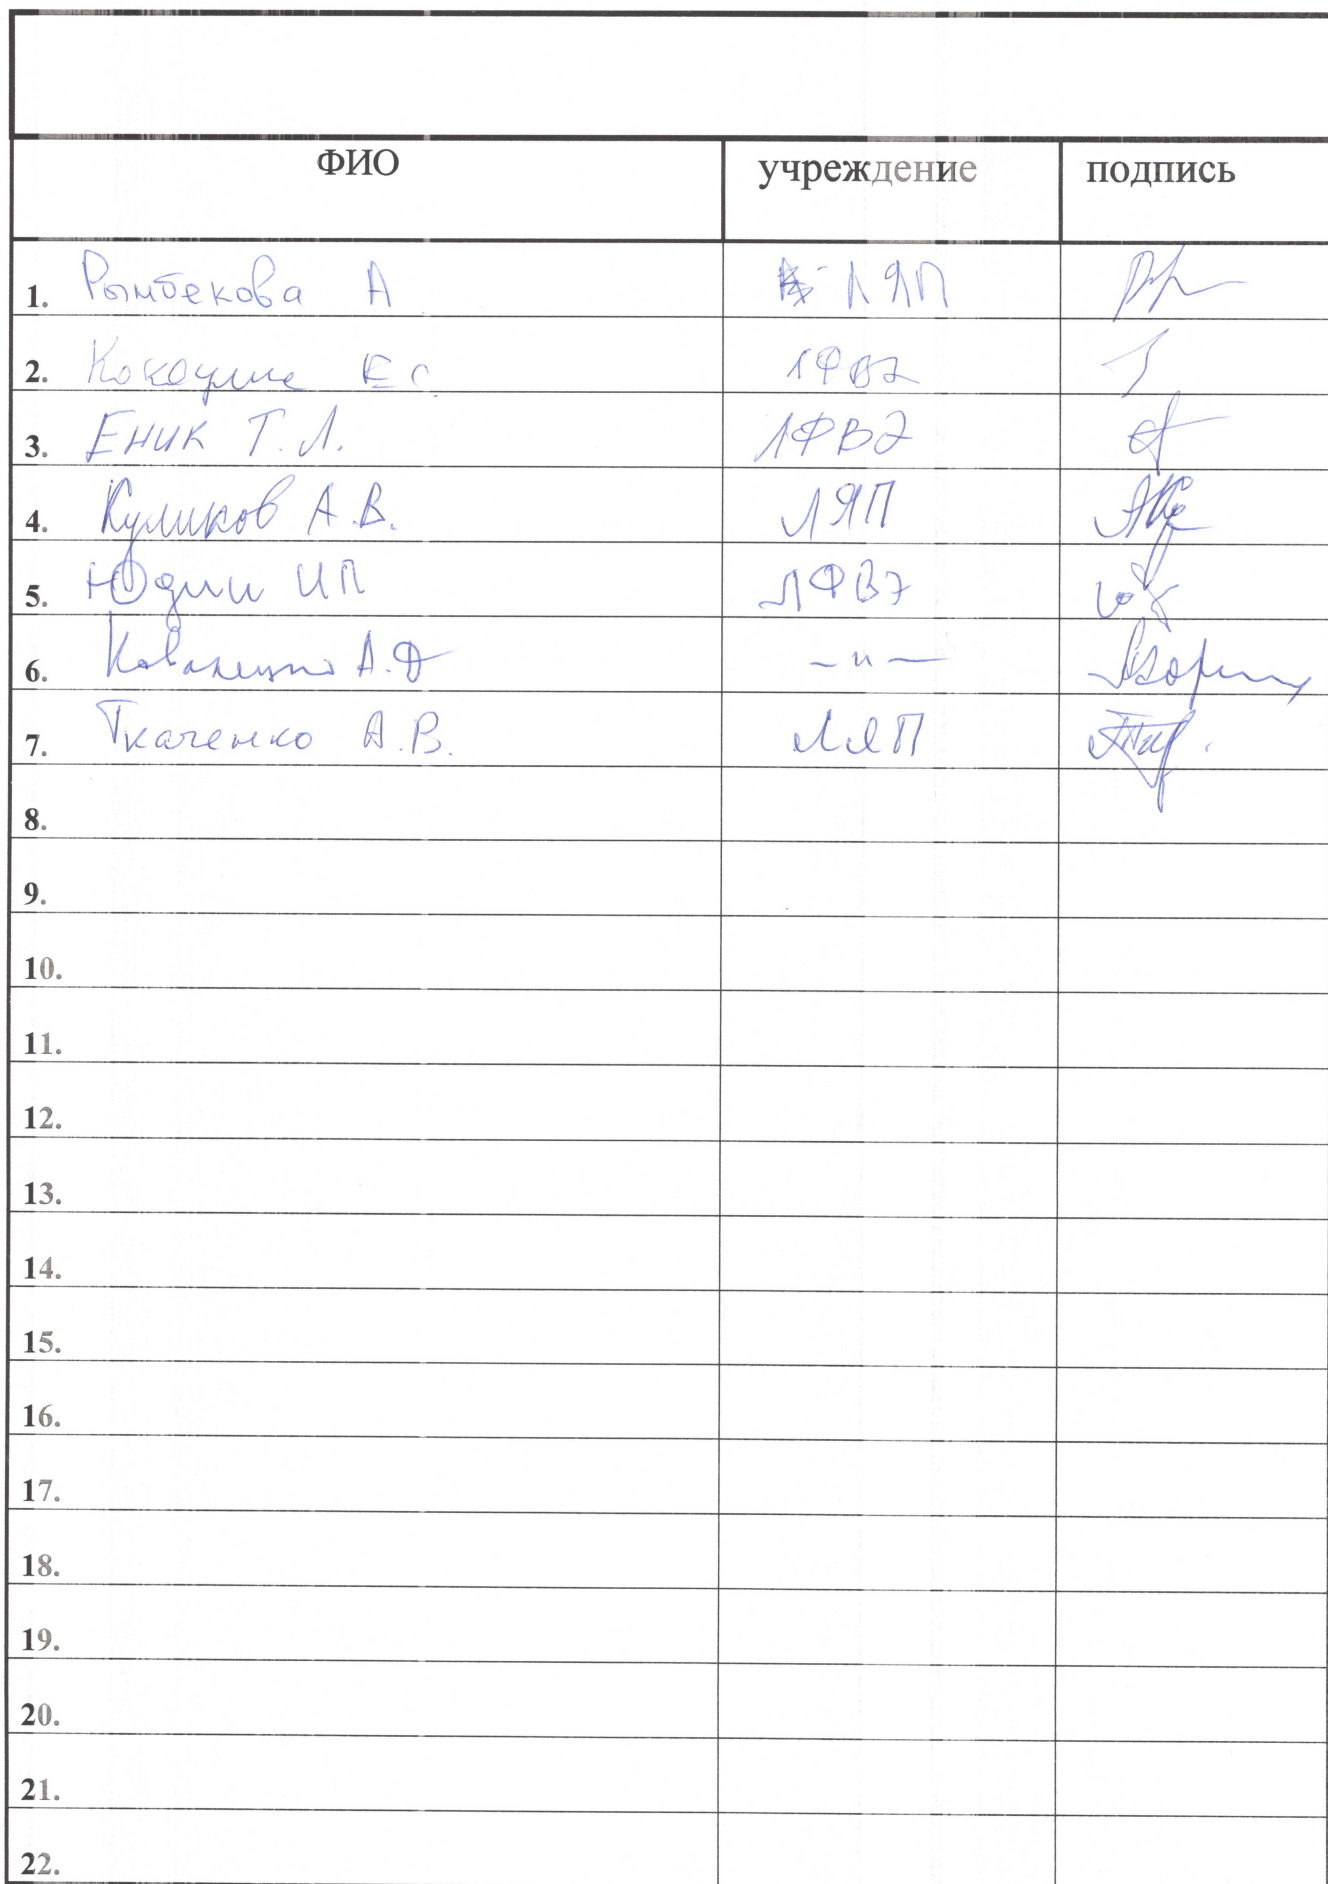 ФИО учреждение подпись
1. Рымбекова А ЛЯП
2. Кокоулина Е С ЛФВЭ
3. Еник Т. Л. ЛФВЭ
4. Куликов А.В. ЛЯП
5. Юдин И П ЛФВЭ
6. А.Д — " —
7. Ткаченко А.В. ЛЯП
8.
9.
10.
11.
12.
13.
14.
15.
16.
17.
18.
19.
20.
21.
22.